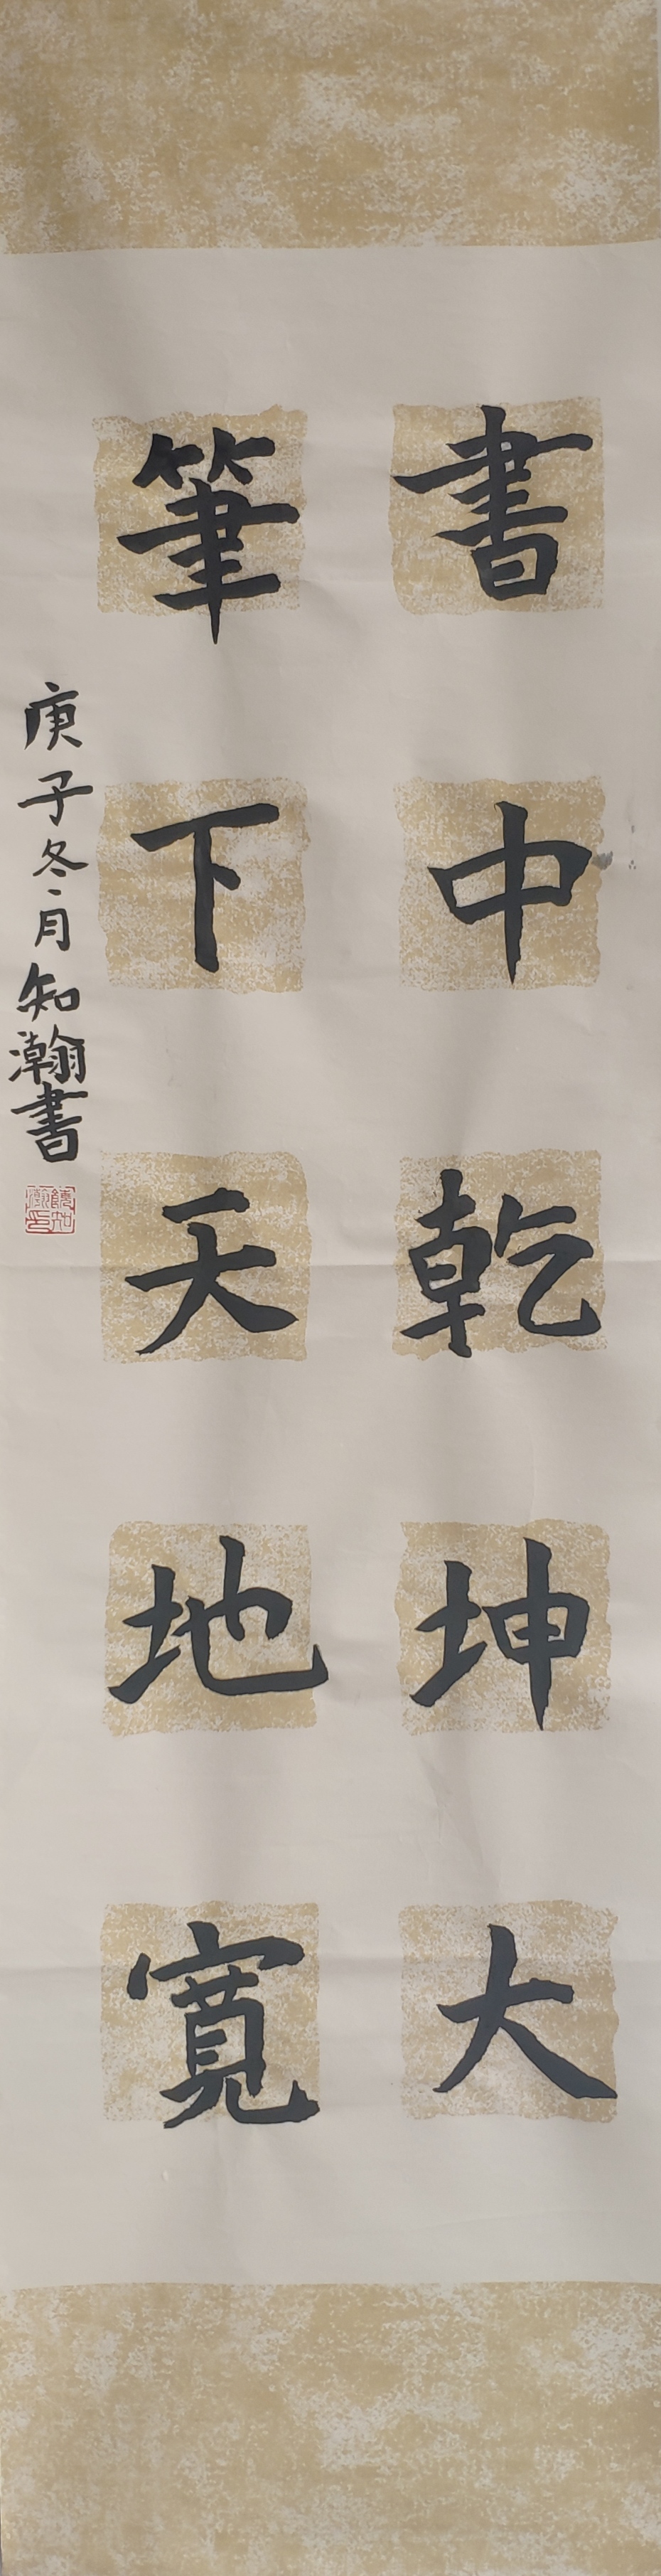 書中乾坤大
筆下天地寬
庚子冬月知瀚書
饒知瀚印